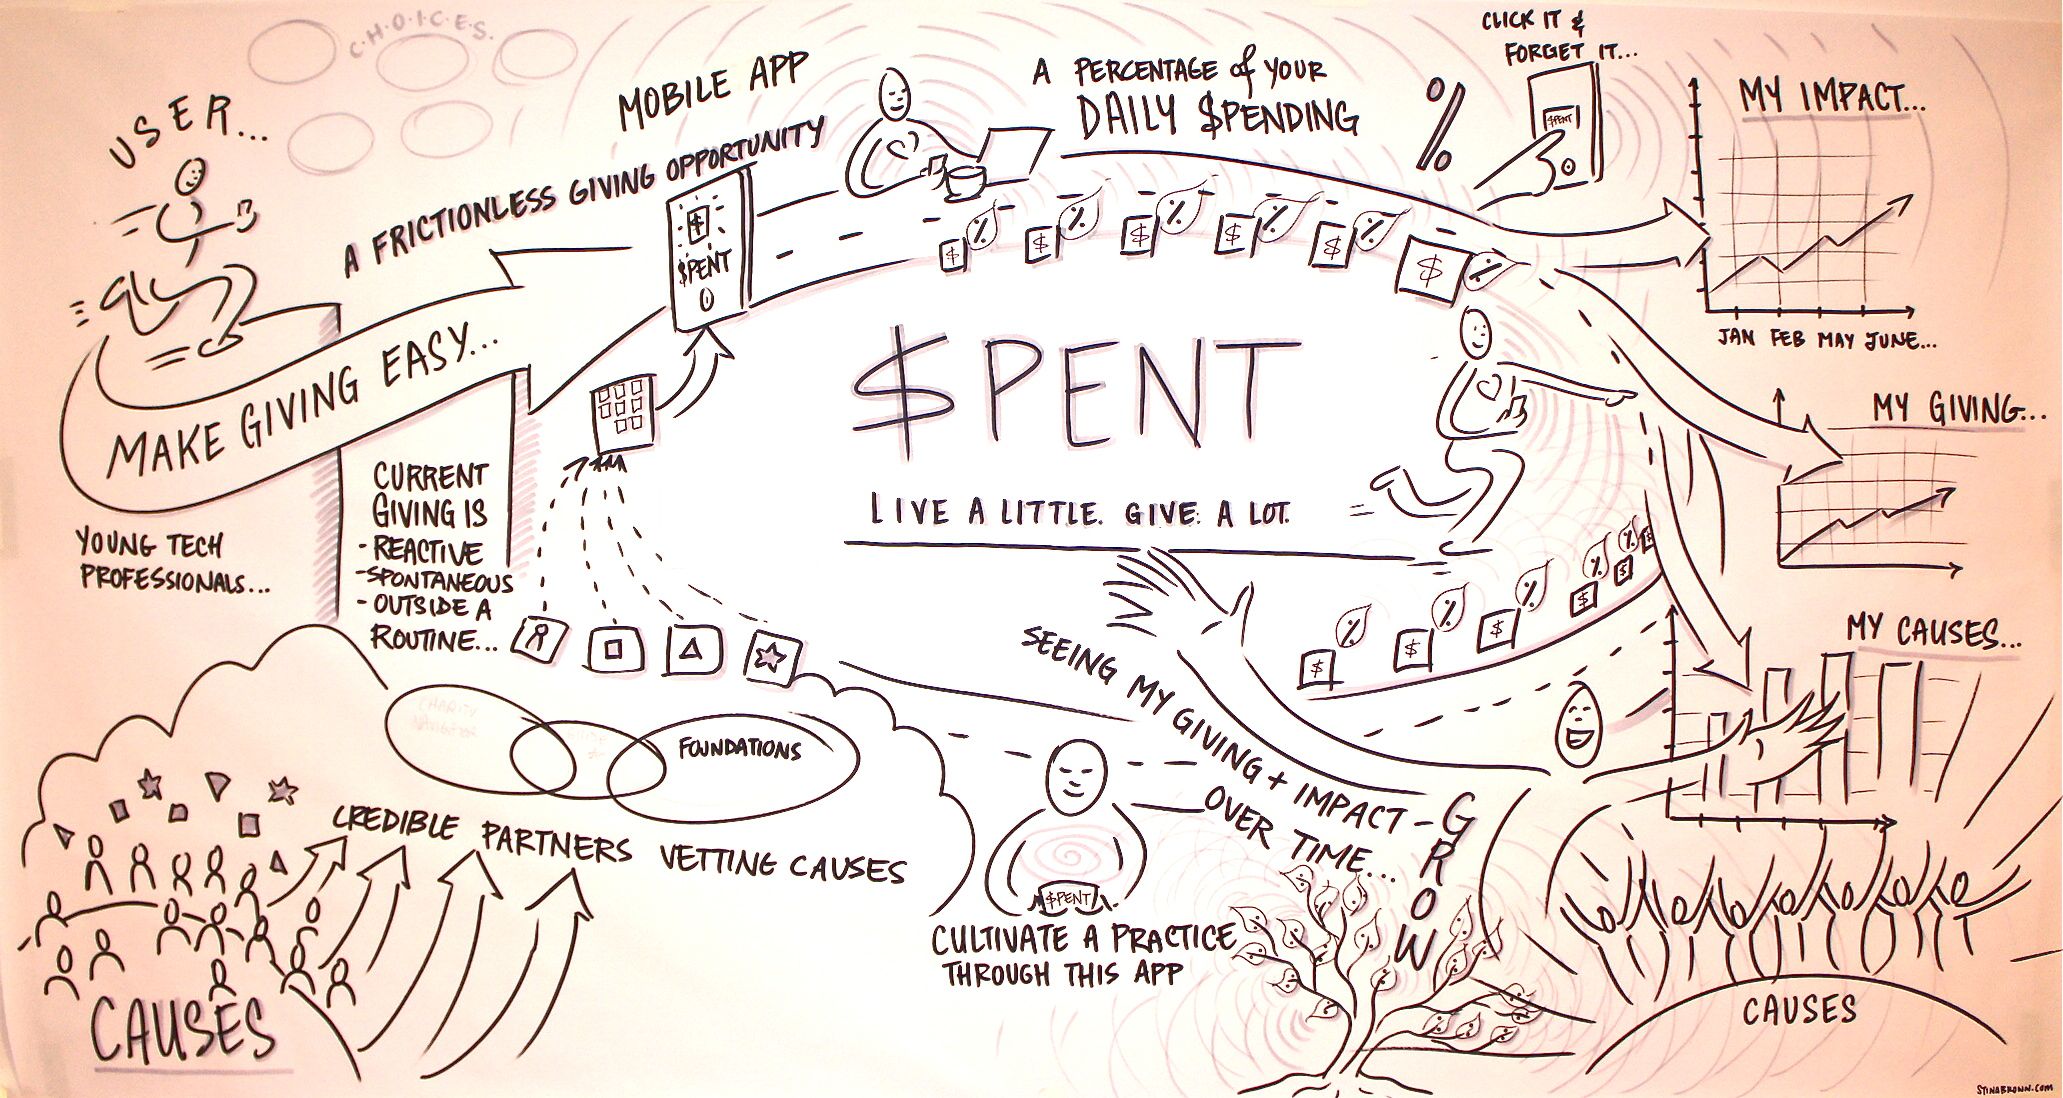 C.H.O.I.C.E.S.
USER...
MOBILE APP
A FRICTIONLESS GIVING OPPORTUNITY
$
$PENT
MAKE GIVING EASY...
YOUNG TECH
PROFESSIONALS...
CURRENT
GIVING IS
- REACTIVE
- SPONTANEOUS
- OUTSIDE A
ROUTINE...
A PERCENTAGE of YOUR
DAILY $PENDING
%
CLICK IT &
FORGET IT...
$PENT
$ % $ % $ % $ % $ % $ %
$PENT
LIVE A LITTLE. GIVE. A LOT.
MY IMPACT...
JAN FEB MAY JUNE...
MY GIVING...
MY CAUSES...
$ % $ % $ % $ % $ % $
SEEING MY GIVING + IMPACT -
OVER TIME...
GROW
CHARITY
NAVIGATOR
FOUNDATIONS
CREDIBLE PARTNERS VETTING CAUSES
CAUSES
$PENT
CULTIVATE A PRACTICE
THROUGH THIS APP
CAUSES
STINABROWN.COM